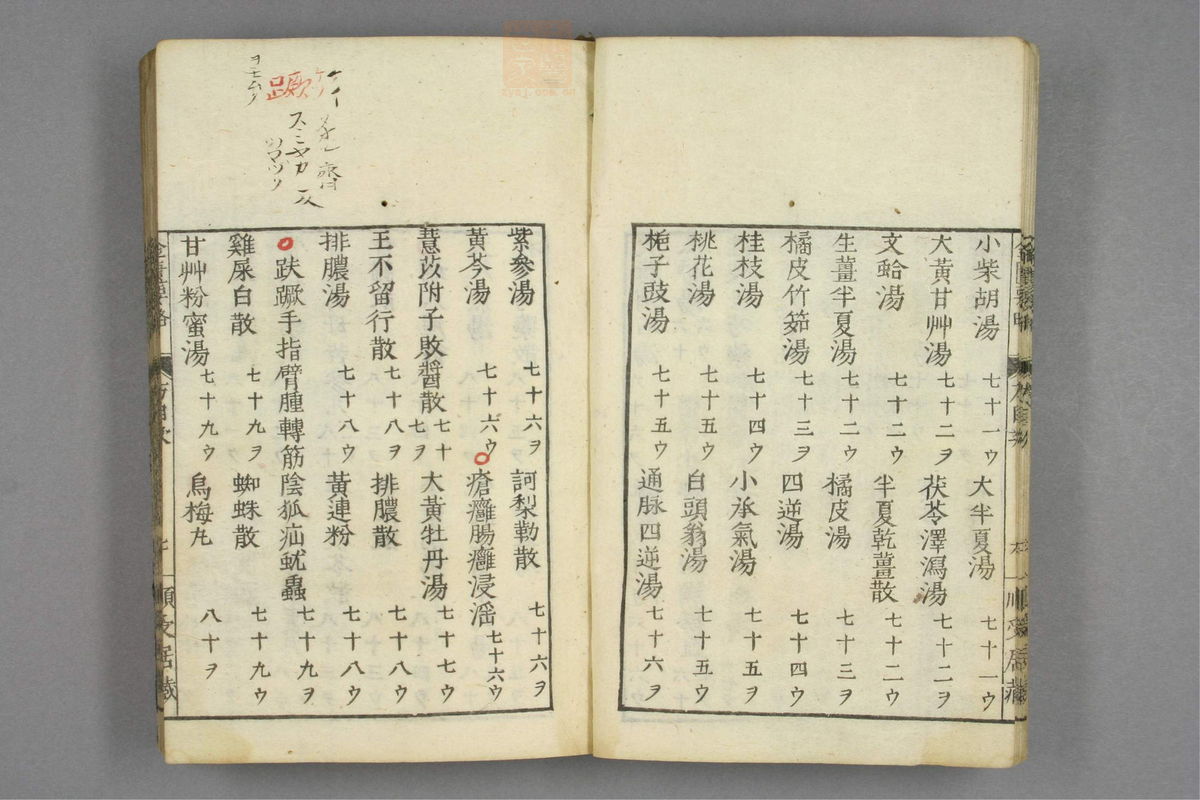 小柴胡湯 七十一ウ 大半夏湯 七十一ウ
大黃甘艸湯 七十二ヲ 茯苓澤瀉湯 七十二ヲ
文蛤湯 七十二ウ 半夏乾薑散 七十二ウ
生薑半夏湯 七十二ウ 橘皮湯 七十三ヲ
橘皮竹筎湯 七十三ヲ 四逆湯 七十四ウ
桂枝湯 七十四ウ 小承氣湯 七十五ヲ
桃花湯 七十五ウ 白頭翁湯 七十五ウ
梔子豉湯 七十五ウ 通脉四逆湯 七十六ヲ
紫參湯 七十六ヲ 訶梨勒散 七十六ヲ
黃芩湯 七十六ウ 瘡癰腸癰浸滛 七十六ウ
薏苡附子敗醬散 七十七ヲ 大黃牡丹湯 七十七ウ
王不留行散 七十八ヲ 排膿散 七十八ウ
排膿湯 七十八ウ 黃連粉 七十八ウ
趺蹶手指臂腫轉筋陰狐疝蚘蟲 七十九ヲ
雞屎白散 七十九ヲ 蜘蛛散 七十九ウ
甘艸粉蜜湯 七十九ウ 烏梅丸 八十ヲ
蹶
順受居藏